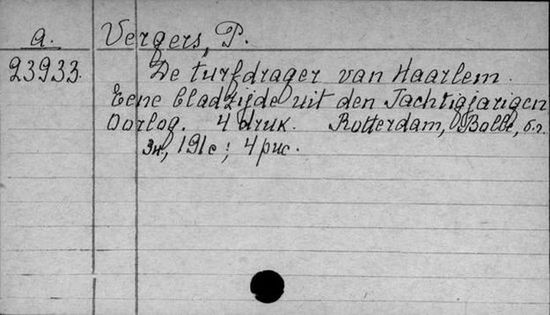 a. Vergers, P.
23933. De turfdrager van Haarlem.
Eene bladzijde uit den Tachtigjarigen
Oorlog. 4 druk. Rotterdam, Bolle, б.г.
3н, 191с; 4 рис.